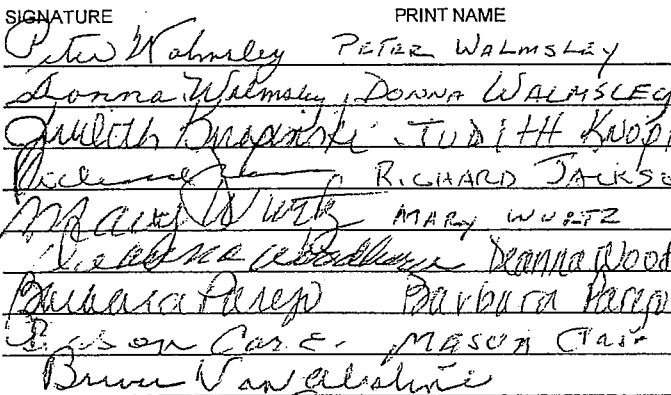 SIGNATURE PRINT NAME
Peter Walmsley PETER WALMSLEY
Donna Walmsley DONNA WALMSLEY
Judith JUDITH Knopi
R.CHARD JACKSO
Mary Wurtz MARY WURTZ
Deanna Wood
Barbara Parejo Barbara Parejo
MASON
Bruce Van Alstine